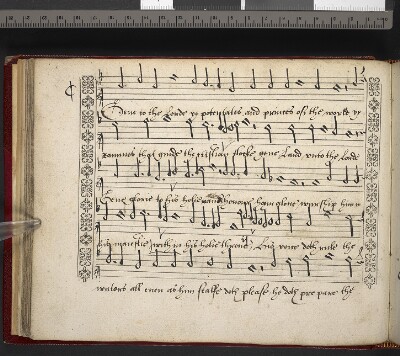 Geve to the Lorde ye potentates and princes off the world ye
rammes that gude the cristian flocke geve laud unto the Lorde
Geve glorie to his holie name honour him glore worschip him in
his majestie within his holie throne his voice doth rule the
waters all even as him selffe doth please he doth prepare the